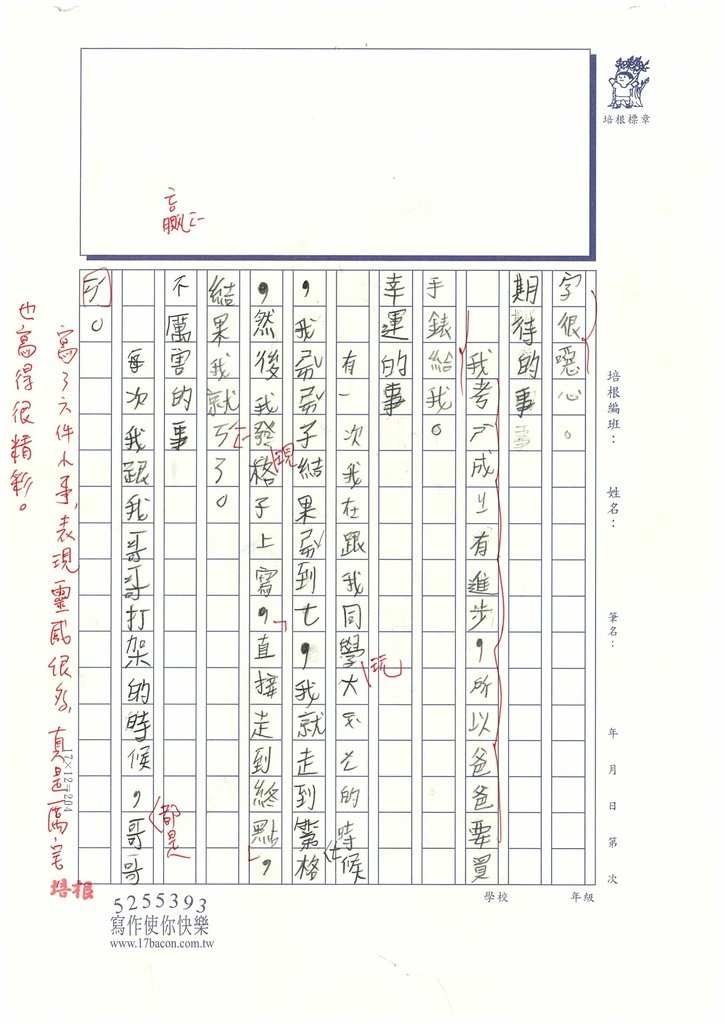 培根標章
培根編班：
姓名：
筆名：
年 月 日 第 次
字很噁心。
期待的事
我考ㄕ成ㄐㄧ有進步，所以爸爸要買
手錶給我。
幸運的事
有一次我在跟我同學大ㄈㄨ的時候
玩
，我丟骰子結果丟到七，我就走到第格
七
，然後我發格子上寫，直接走到終點，
現
結果我就ㄧㄥˊ了。
贏
不厲害的事
每次我跟我哥哥打架的時候，哥哥
都是
ㄧㄥˊ。
寫了六件小事，表現靈感很多，真是厲害
也寫得很精彩。
培根
17×12=204
學校 年級
5255393
寫作使你快樂
www.17bacon.com.tw